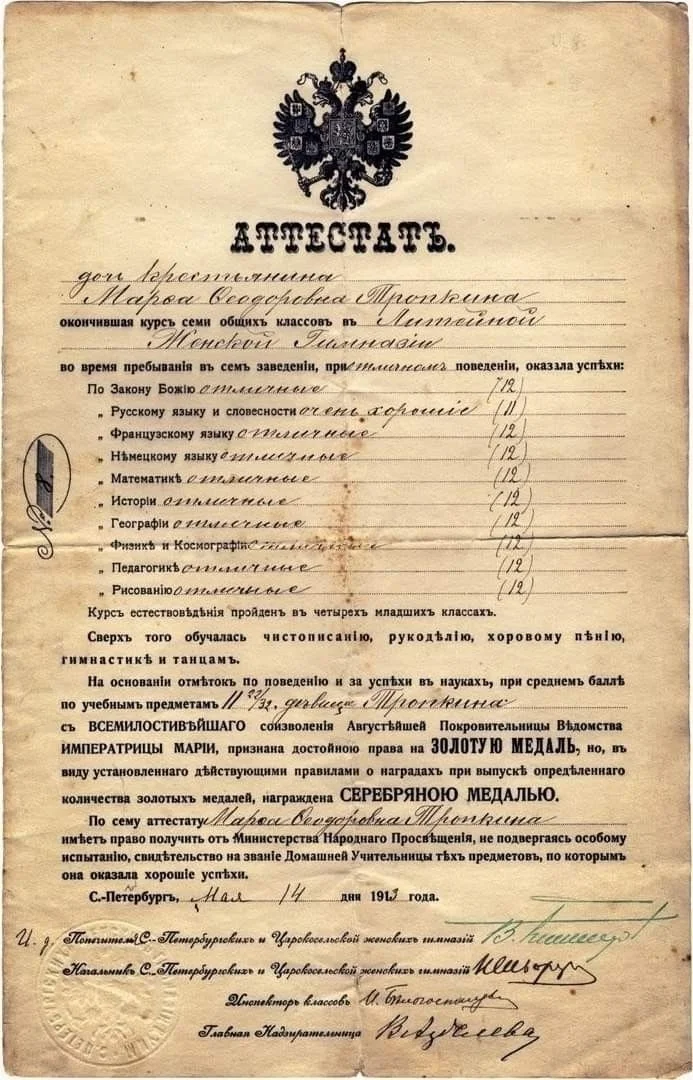 АТТЕСТАТЪ.
дочь крестьянина
Марѳа Ѳеодоровна Тропкина
окончившая курсъ семи общихъ классовъ въ Литейной
Женской Гимназіи
во время пребыванія въ семъ заведеніи, при отличномъ поведеніи, оказала успѣхи:
По Закону Божію отличные (12)
„ Русскому языку и словесности очень хорошіе (11)
„ Французскому языку отличные (12)
„ Нѣмецкому языку отличные (12)
„ Математикѣ отличные (12)
„ Исторіи отличные (12)
„ Географіи отличные (12)
„ Физикѣ и Космографіи отличные (12)
„ Педагогикѣ отличные (12)
„ Рисованію отличные (12)
№ 8
Курсъ естествовѣдѣнія пройденъ въ четырехъ младшихъ классахъ.
Сверхъ того обучалась чистописанію, рукодѣлію, хоровому пѣнію,
гимнастикѣ и танцамъ.
На основаніи отмѣтокъ по поведенію и за успѣхи въ наукахъ, при среднемъ баллѣ
по учебнымъ предметамъ 11 дѣвица Тропкина
съ ВСЕМИЛОСТИВѢЙШАГО соизволенія Августѣйшей Покровительницы Вѣдомства
ИМПЕРАТРИЦЫ МАРІИ, признана достойною права на ЗОЛОТУЮ МЕДАЛЬ, но, въ
виду установленнаго дѣйствующими правилами о наградахъ при выпускѣ опредѣленнаго
количества золотыхъ медалей, награждена СЕРЕБРЯНОЮ МЕДАЛЬЮ.
По сему аттестату Марѳа Ѳеодоровна Тропкина
имѣетъ право получить отъ Министерства Народнаго Просвѣщенія, не подвергаясь особому
испытанію, свидѣтельство на званіе Домашней Учительницы тѣхъ предметовъ, по которымъ
она оказала хорошіе успѣхи.
С.-Петербургъ, Мая 14 дня 1913 года.
И. д. Попечителя С.-Петербургскихъ и Царскосельской женскихъ гимназій
Начальникъ С.-Петербургскихъ и Царскосельской женскихъ гимназій
Инспекторъ классовъ
Главная Надзирательница